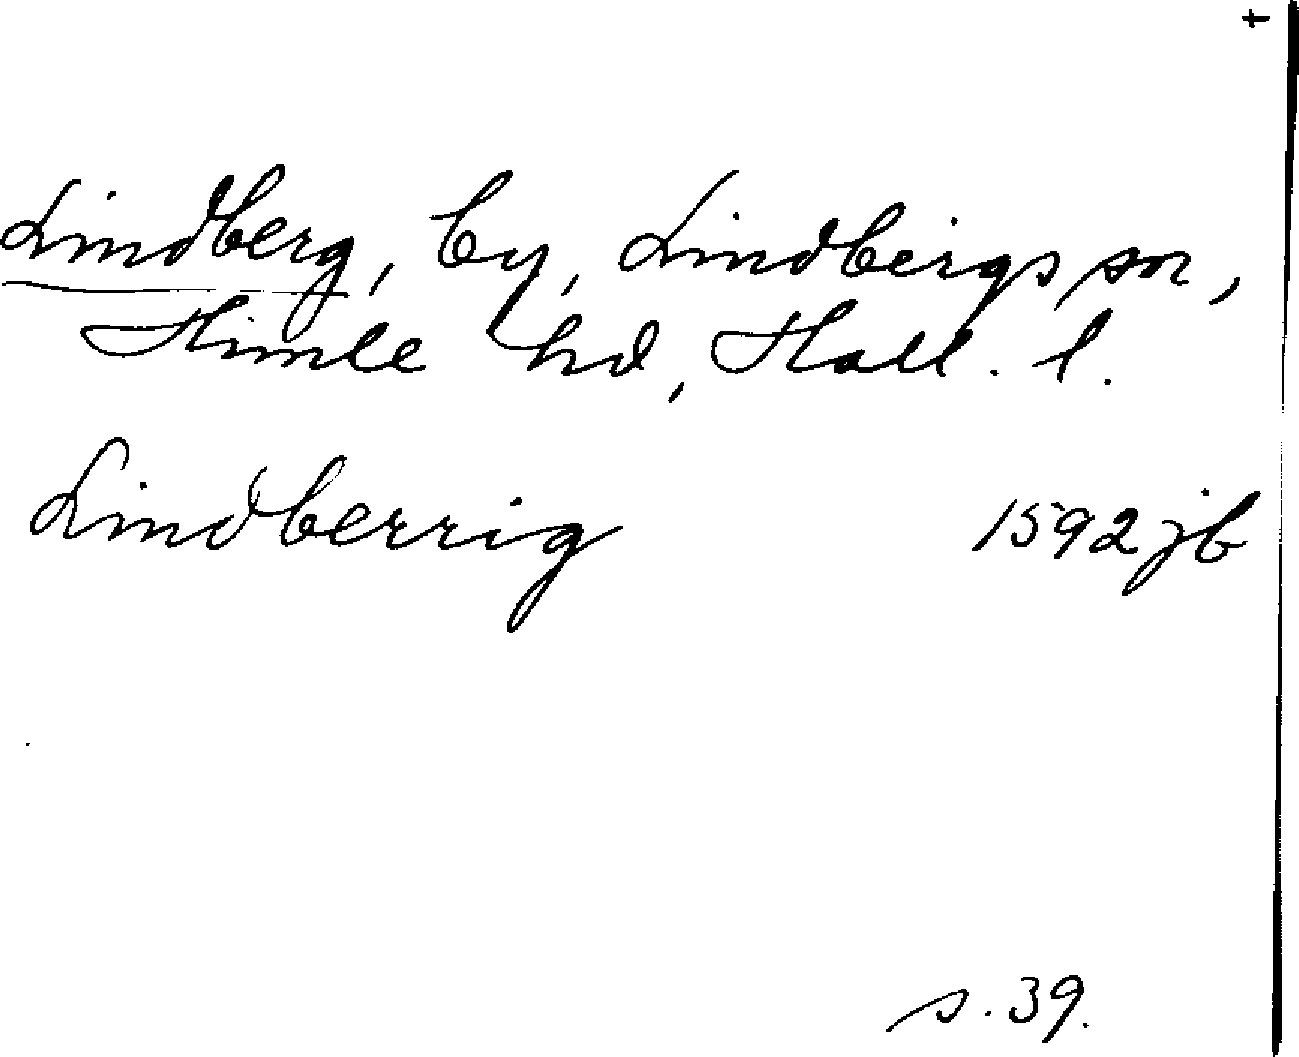 Lindberg, by, Lindbergs sn,
Himle hd, Hall. l.
Lindberrig 1592 jb
s. 39.